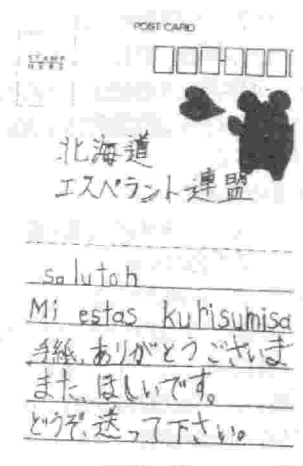 POST CARD
STAMP
HERE
北海道
エスペラント連盟
saluton
Mi estas kurisumisa
手紙、ありがとうございま
また、ほしいです。
どうぞ、送って下さい。